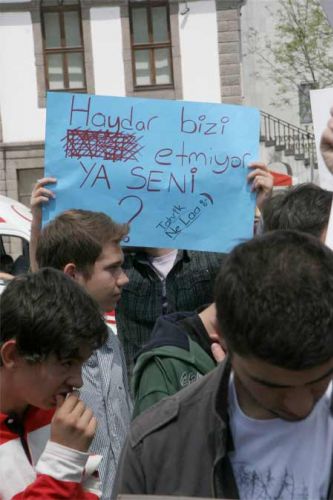 Haydar bizi
etmiyor
YA SENİ
?
Tahrik
Ne Lan